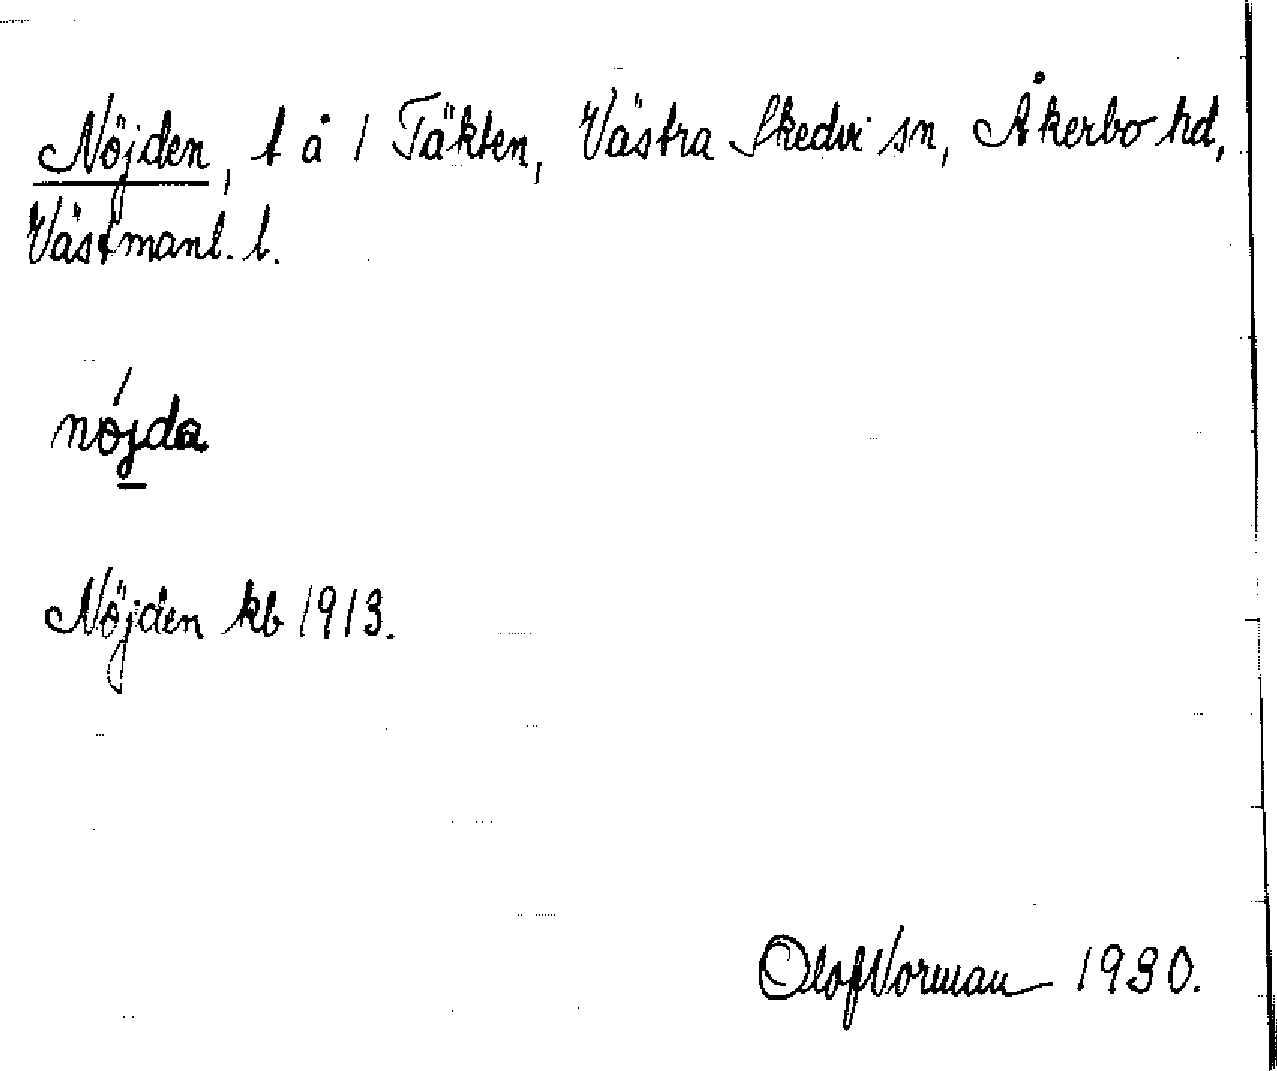 Nöjden, t å 1 Täkten, Västra Skedvi sn, Åkerbo hd,
Västmanl. l.
nójda
Nöjden kb 1913.
Olof Norman 1930.